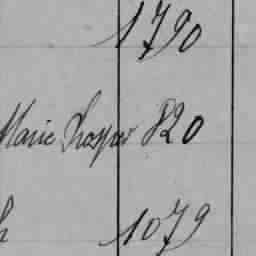 1790
Marie Prosper 820
h 1079